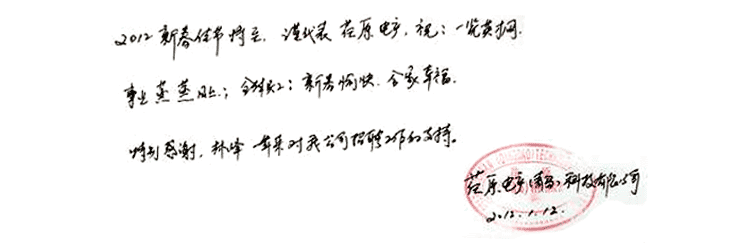 2012新春佳节将至,谨代表荏原电产,祝:一览英才网
事业蒸蒸日上;全体员工:新春愉快.合家幸福.
特别感谢,林峰一年来对我公司招聘工作的支持。
荏原电产(青岛)科技有限公司
2012.1.12.